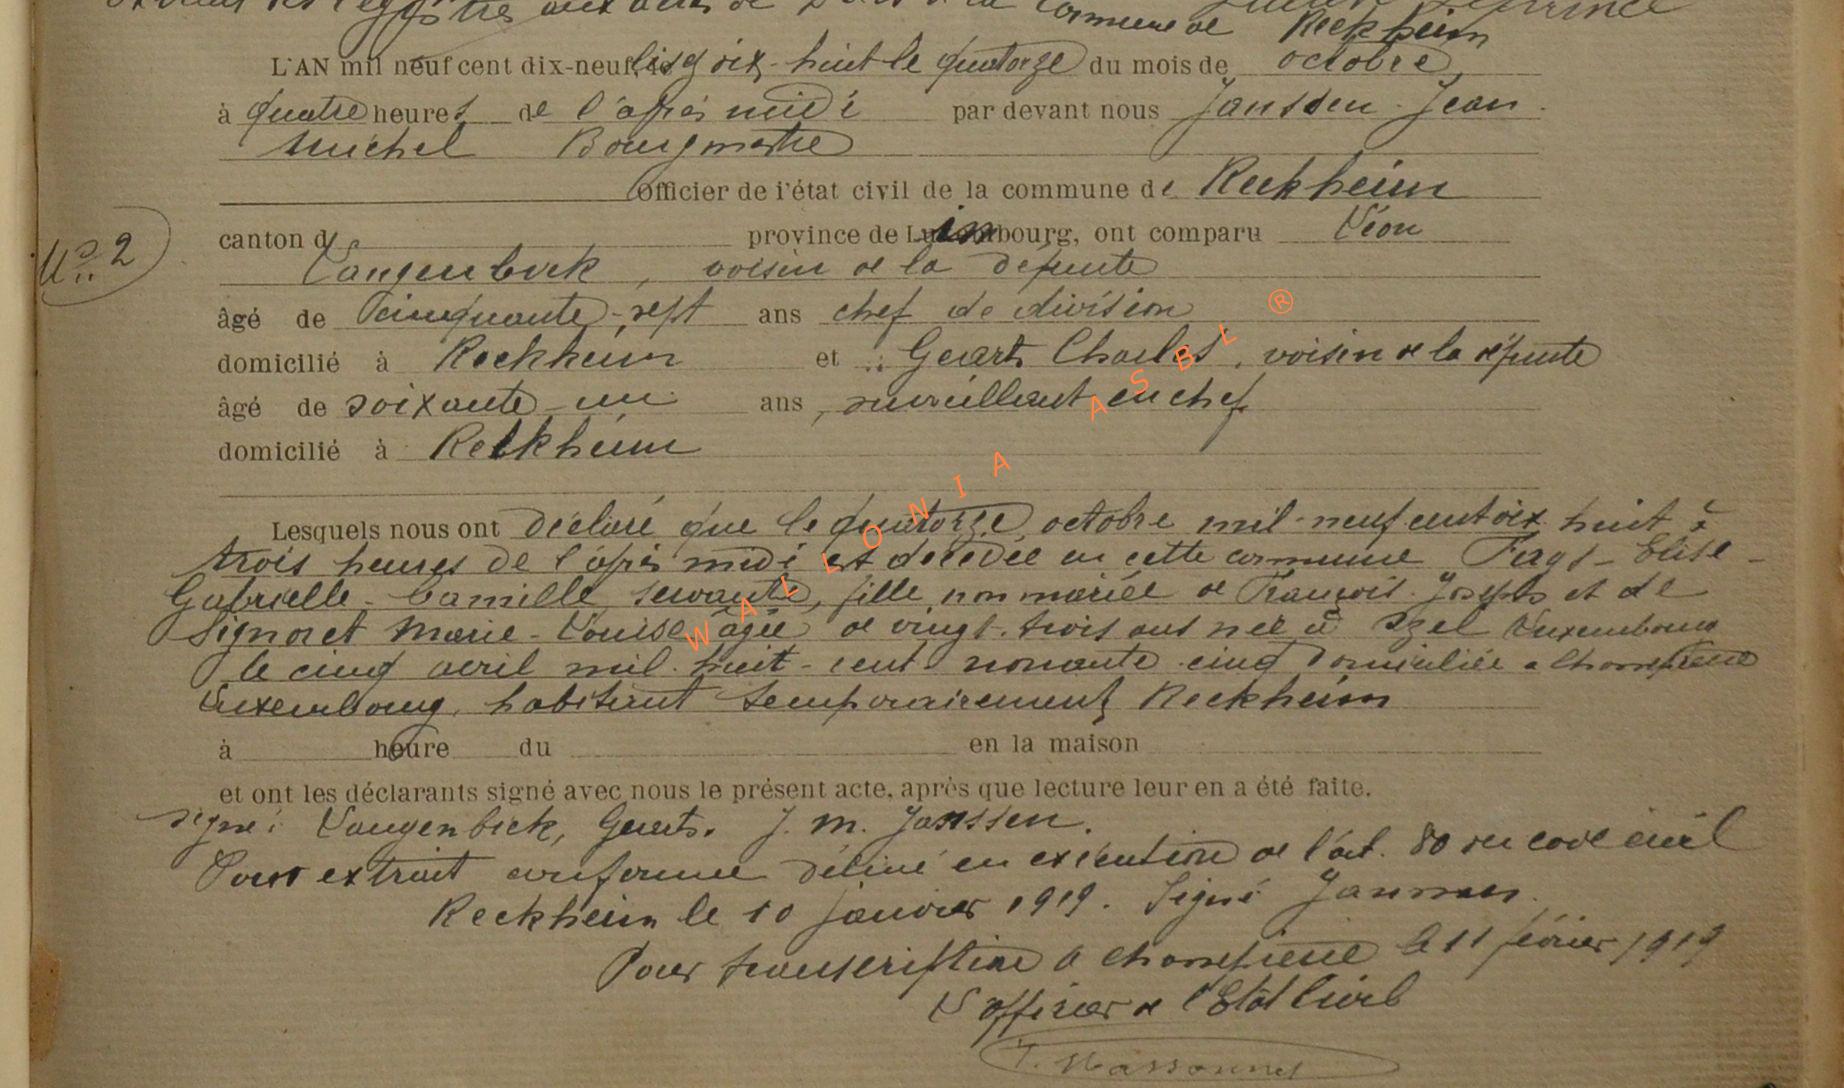 extrait des registres aux actes de Décès de la commune de Reckheim
L'AN mil neuf cent dix-huit le quatorze du mois de octobre,
à quatre heures de l'après midi par devant nous Janssen Jean
Michel Bourgmestre
Officier de l'état civil de la commune de Reckheim
canton d province de Limbourg, ont comparu Léon
N° 2
Langenbick, voisin de la défunte
âgé de cinquante-sept ans chef de division
domicilié à Reckheim et Geerts Charles, voisin de la défunte
âgé de soixante-un ans, surveillant en chef
domicilié à Reckheim
Lesquels nous ont déclaré que le quatorze octobre mil-neuf cent dix huit à
trois heures de l'après midi est décédée en cette commune Fays-Elise-
Gabrielle-Camille, servante, fille non mariée de François-Joseph et de
Signoret Marie-Louise âgée de vingt-trois ans née à Izel Luxembourg
le cinq avril mil-huit-cent nonante cinq domiciliée à Chassepierre
Luxembourg, habitant temporairement Reckheim
à heure du en la maison
et ont les déclarants signé avec nous le présent acte, après que lecture leur en a été faite.
signé: Langenbick, Geerts. J. M. Janssen.
Pour extrait conforme délivré en exécution de l'art. 80 du code civil
Reckheim le 10 janvier 1919. Signé Janssen.
Pour transcription à Chassepierre le 11 février 1919
L'officier de l'Etat Civil
T. Massonnet
WALLONIA ASBL ®